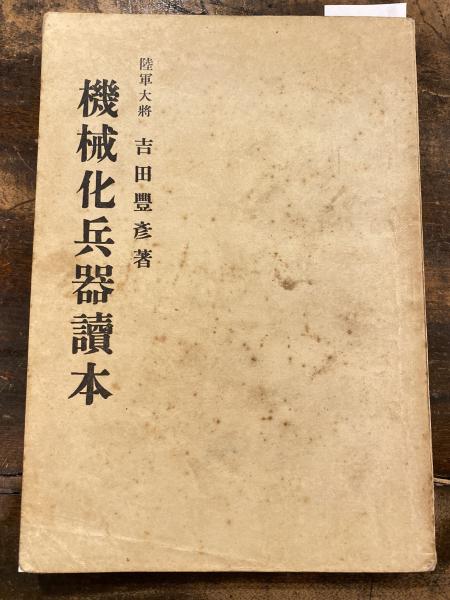 陸軍大將 吉田豐彥著
機械化兵器讀本